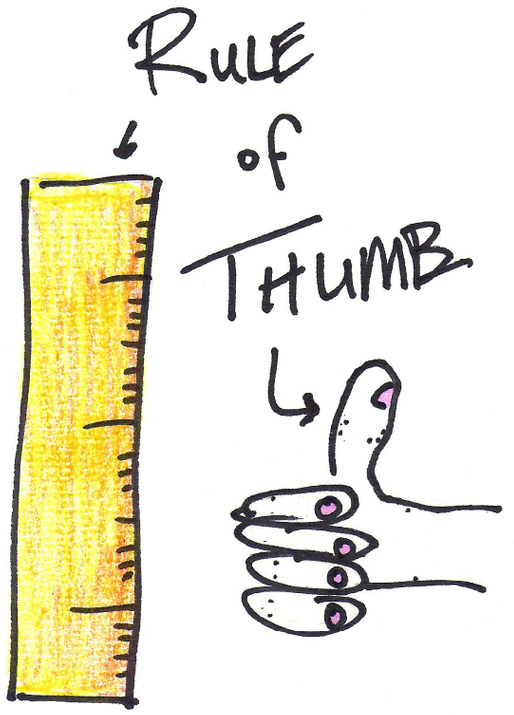 RULE
of
THUMB